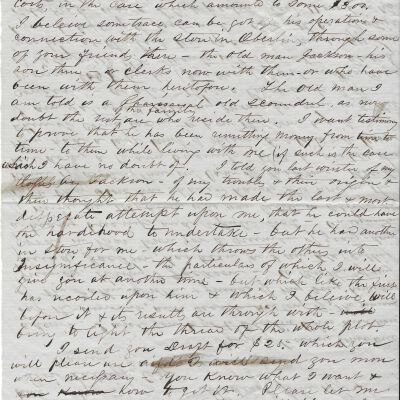 costs, in the case which amounts to some $300.
I beleive some trace can be got of his operations &
connection with the store in Oberlin, through some
of your friends there - the old man Jackson - his
son there, or Clerks now with them - or who have
been with them heretofore. The old man I
am told is a old scoundrel, as no
doubt the rest are who reside there. I want testimony
the family
to prove that he has been remitting money from time to
time - to them while living with me, if such is the case
which I have no doubt of - I told you last winter of my
by Jackson - of my trouble & their origin &
then thought that he had made the last & most
desperate attempt upon me, that he could have
the hardihood to undertake - but he has another
in Store for me - which throws the others into
insignificance - the particulars of which, I will
give you at another time - but which like the first
has recoiled upon him & which I beleive, will
upon it & its results are through with -
bring to light the thread of the whole plot.
I send you Draft for $25 - which you
will please use and will send you more
when necessary - You know what I want &
you how to get it. Please let me